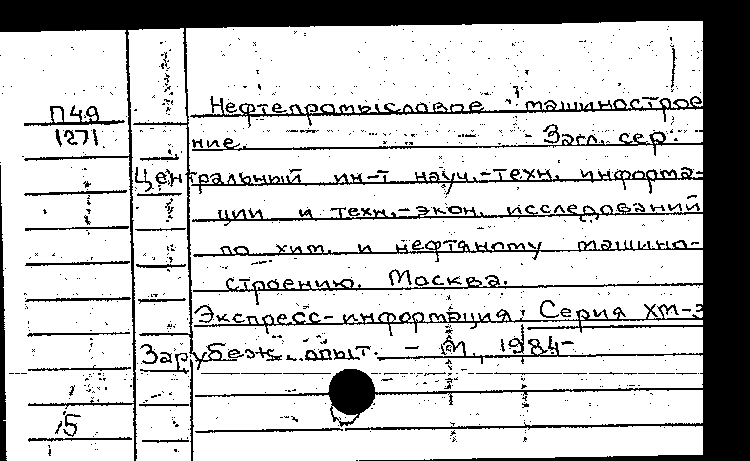 П49
1271
Нефтепромысловое машинострое
ние. Загл. сер.
Центральный ин-т науч.-техн. информа-
ции и техн.-экон. исследований
по хим. и нефтяному машино-
строению. Москва.
Экспресс-информация; Серия ХМ-3
Зарубеж. опыт. - М., 1984-
15